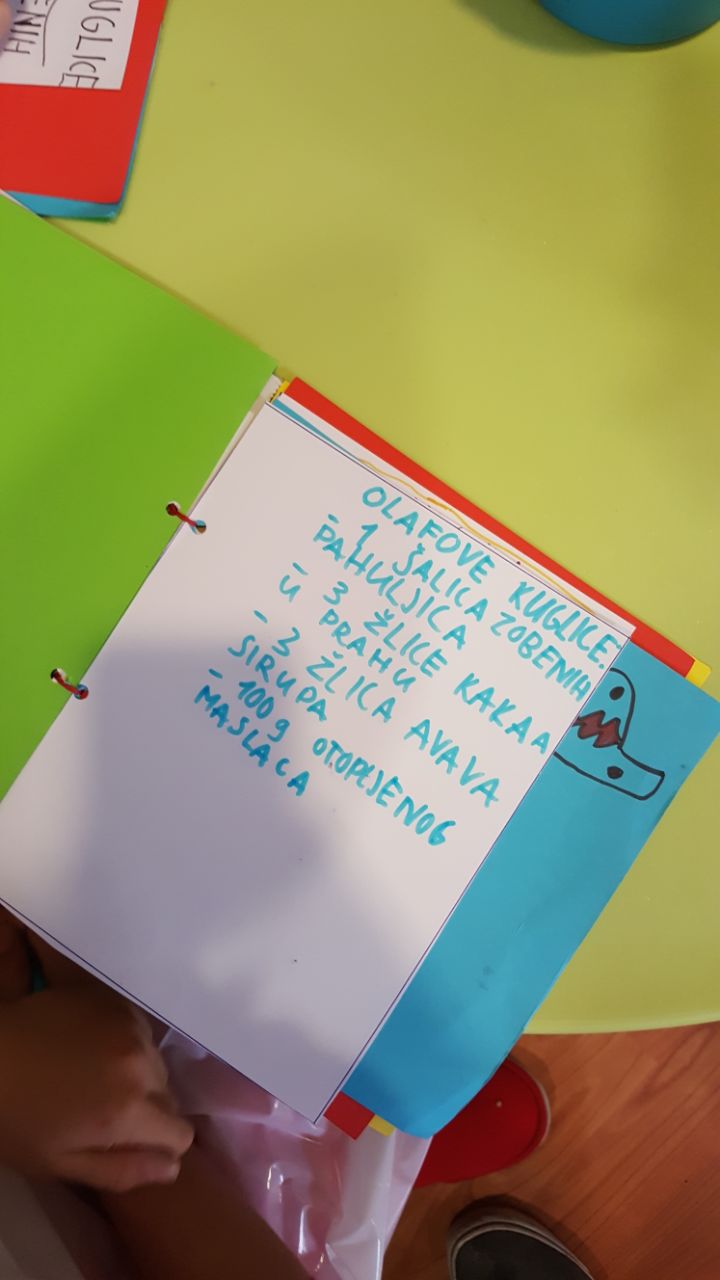 UGLICE
ENIH
OLAFOVE KUGLICE:
- 1 ŠALICA ZOBENIH
PAHULJICA
- 3 ŽLICE KAKAA
U PRAHU
- 3 ŽLICA AVAVA
SIRUPA
- 100 g OTOPLJENOG
MASLACA